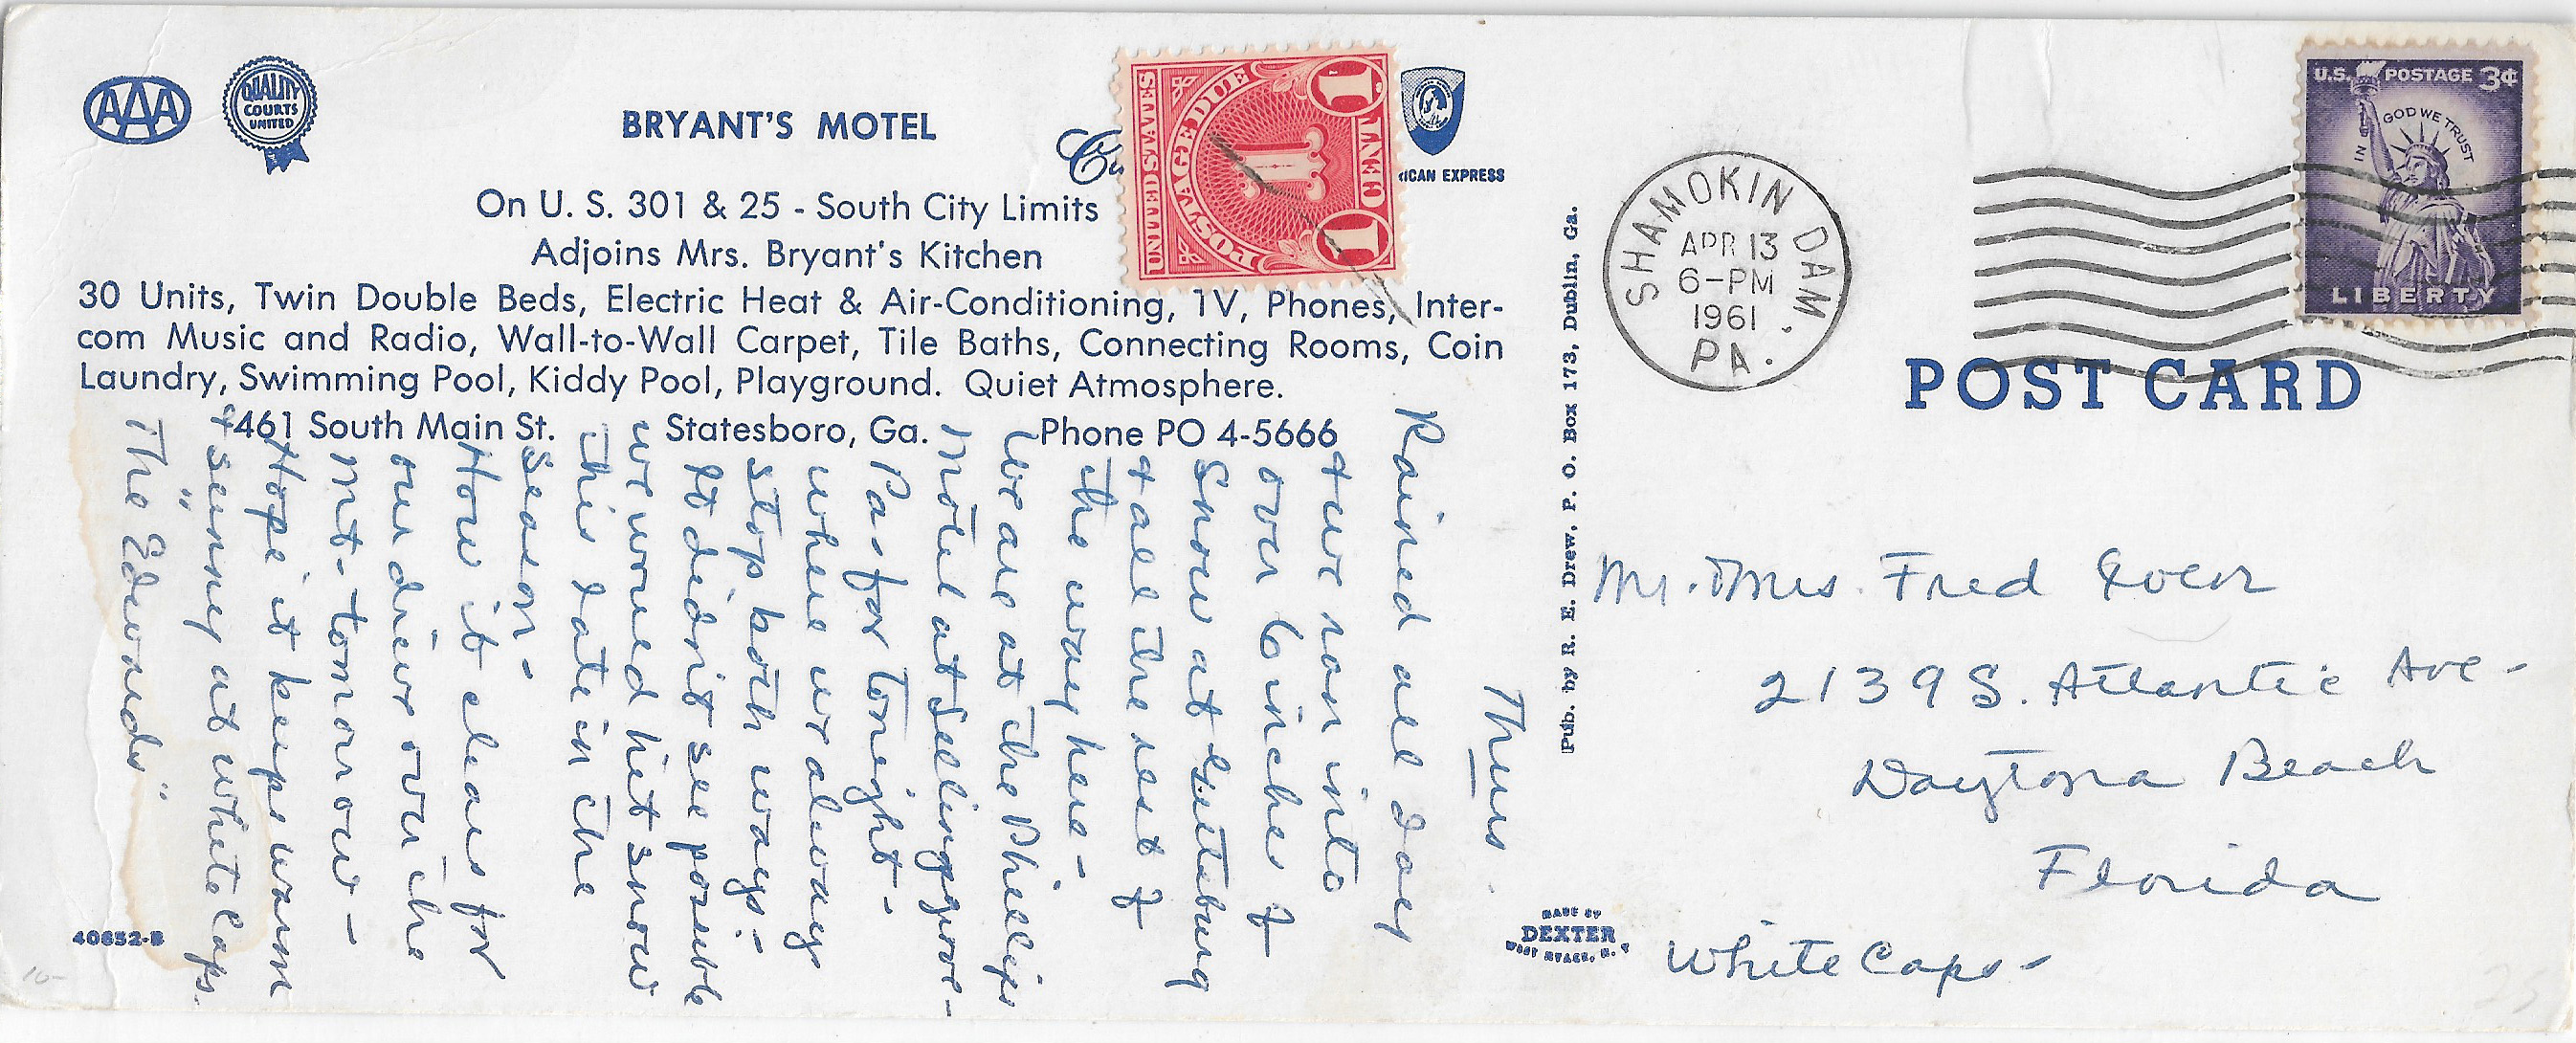 AAA
QUALITY
COURTS
UNITED
BRYANT'S MOTEL
UNITED STATES
POSTAGE DUE
1 CENT 1
1
ICAN EXPRESS
On U. S. 301 & 25 - South City Limits
Adjoins Mrs. Bryant's Kitchen
30 Units, Twin Double Beds, Electric Heat & Air-Conditioning, TV, Phones, Inter-
com Music and Radio, Wall-to-Wall Carpet, Tile Baths, Connecting Rooms, Coin
Laundry, Swimming Pool, Kiddy Pool, Playground. Quiet Atmosphere.
461 South Main St. Statesboro, Ga. Phone PO 4-5666
Thurs.
Rained all day
& we ran into
over 6 inches of
Snow at
& all the rest of
the way here -
We are at the Phillips
Motel at Selinsgrove -
Pa for tonight -
where we always
stop both ways. -
It didn't see possible
we would hit snow
this late in the
season -
How it clears for
our drive over the
mt - tomorrow -
Hope it keeps warm
& sunny at White Caps.
"The Edwards"
40652-B
10-
Pub. by R. E. Drew, P. O. Box 173, Dublin, Ga.
MADE BY
DEXTER
WEST NYACK, N. Y.
SHAMOKIN DAM.
APR 13
6-PM
1961
PA.
U.S. POSTAGE 3¢
IN GOD WE TRUST
LIBERTY
POST CARD
Mr. & Mrs. Fred
2139 S. Atlantic Ave -
Daytona Beach
Florida
White Caps -